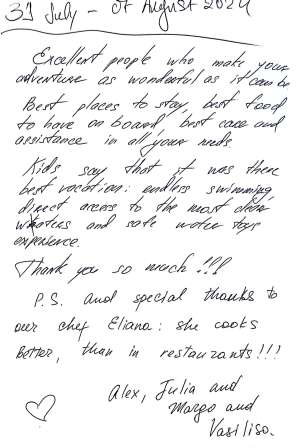 31 July - 07 August 2024
Excellent people who make your
adventure as wonderful as it can be
Best places to stay, best food
to have on board, best care and
assistance in all your needs.
Kids say that it was there
best vacation: endless swimming,
direct access to the most clear
waters and safe water toys
experience.
Thank you so much!!!
P.S. and special thanks to
our chef Eliana: she cooks
better, than in restaurants!!!
Alex, Julia and
Margo and
Vasilisa.